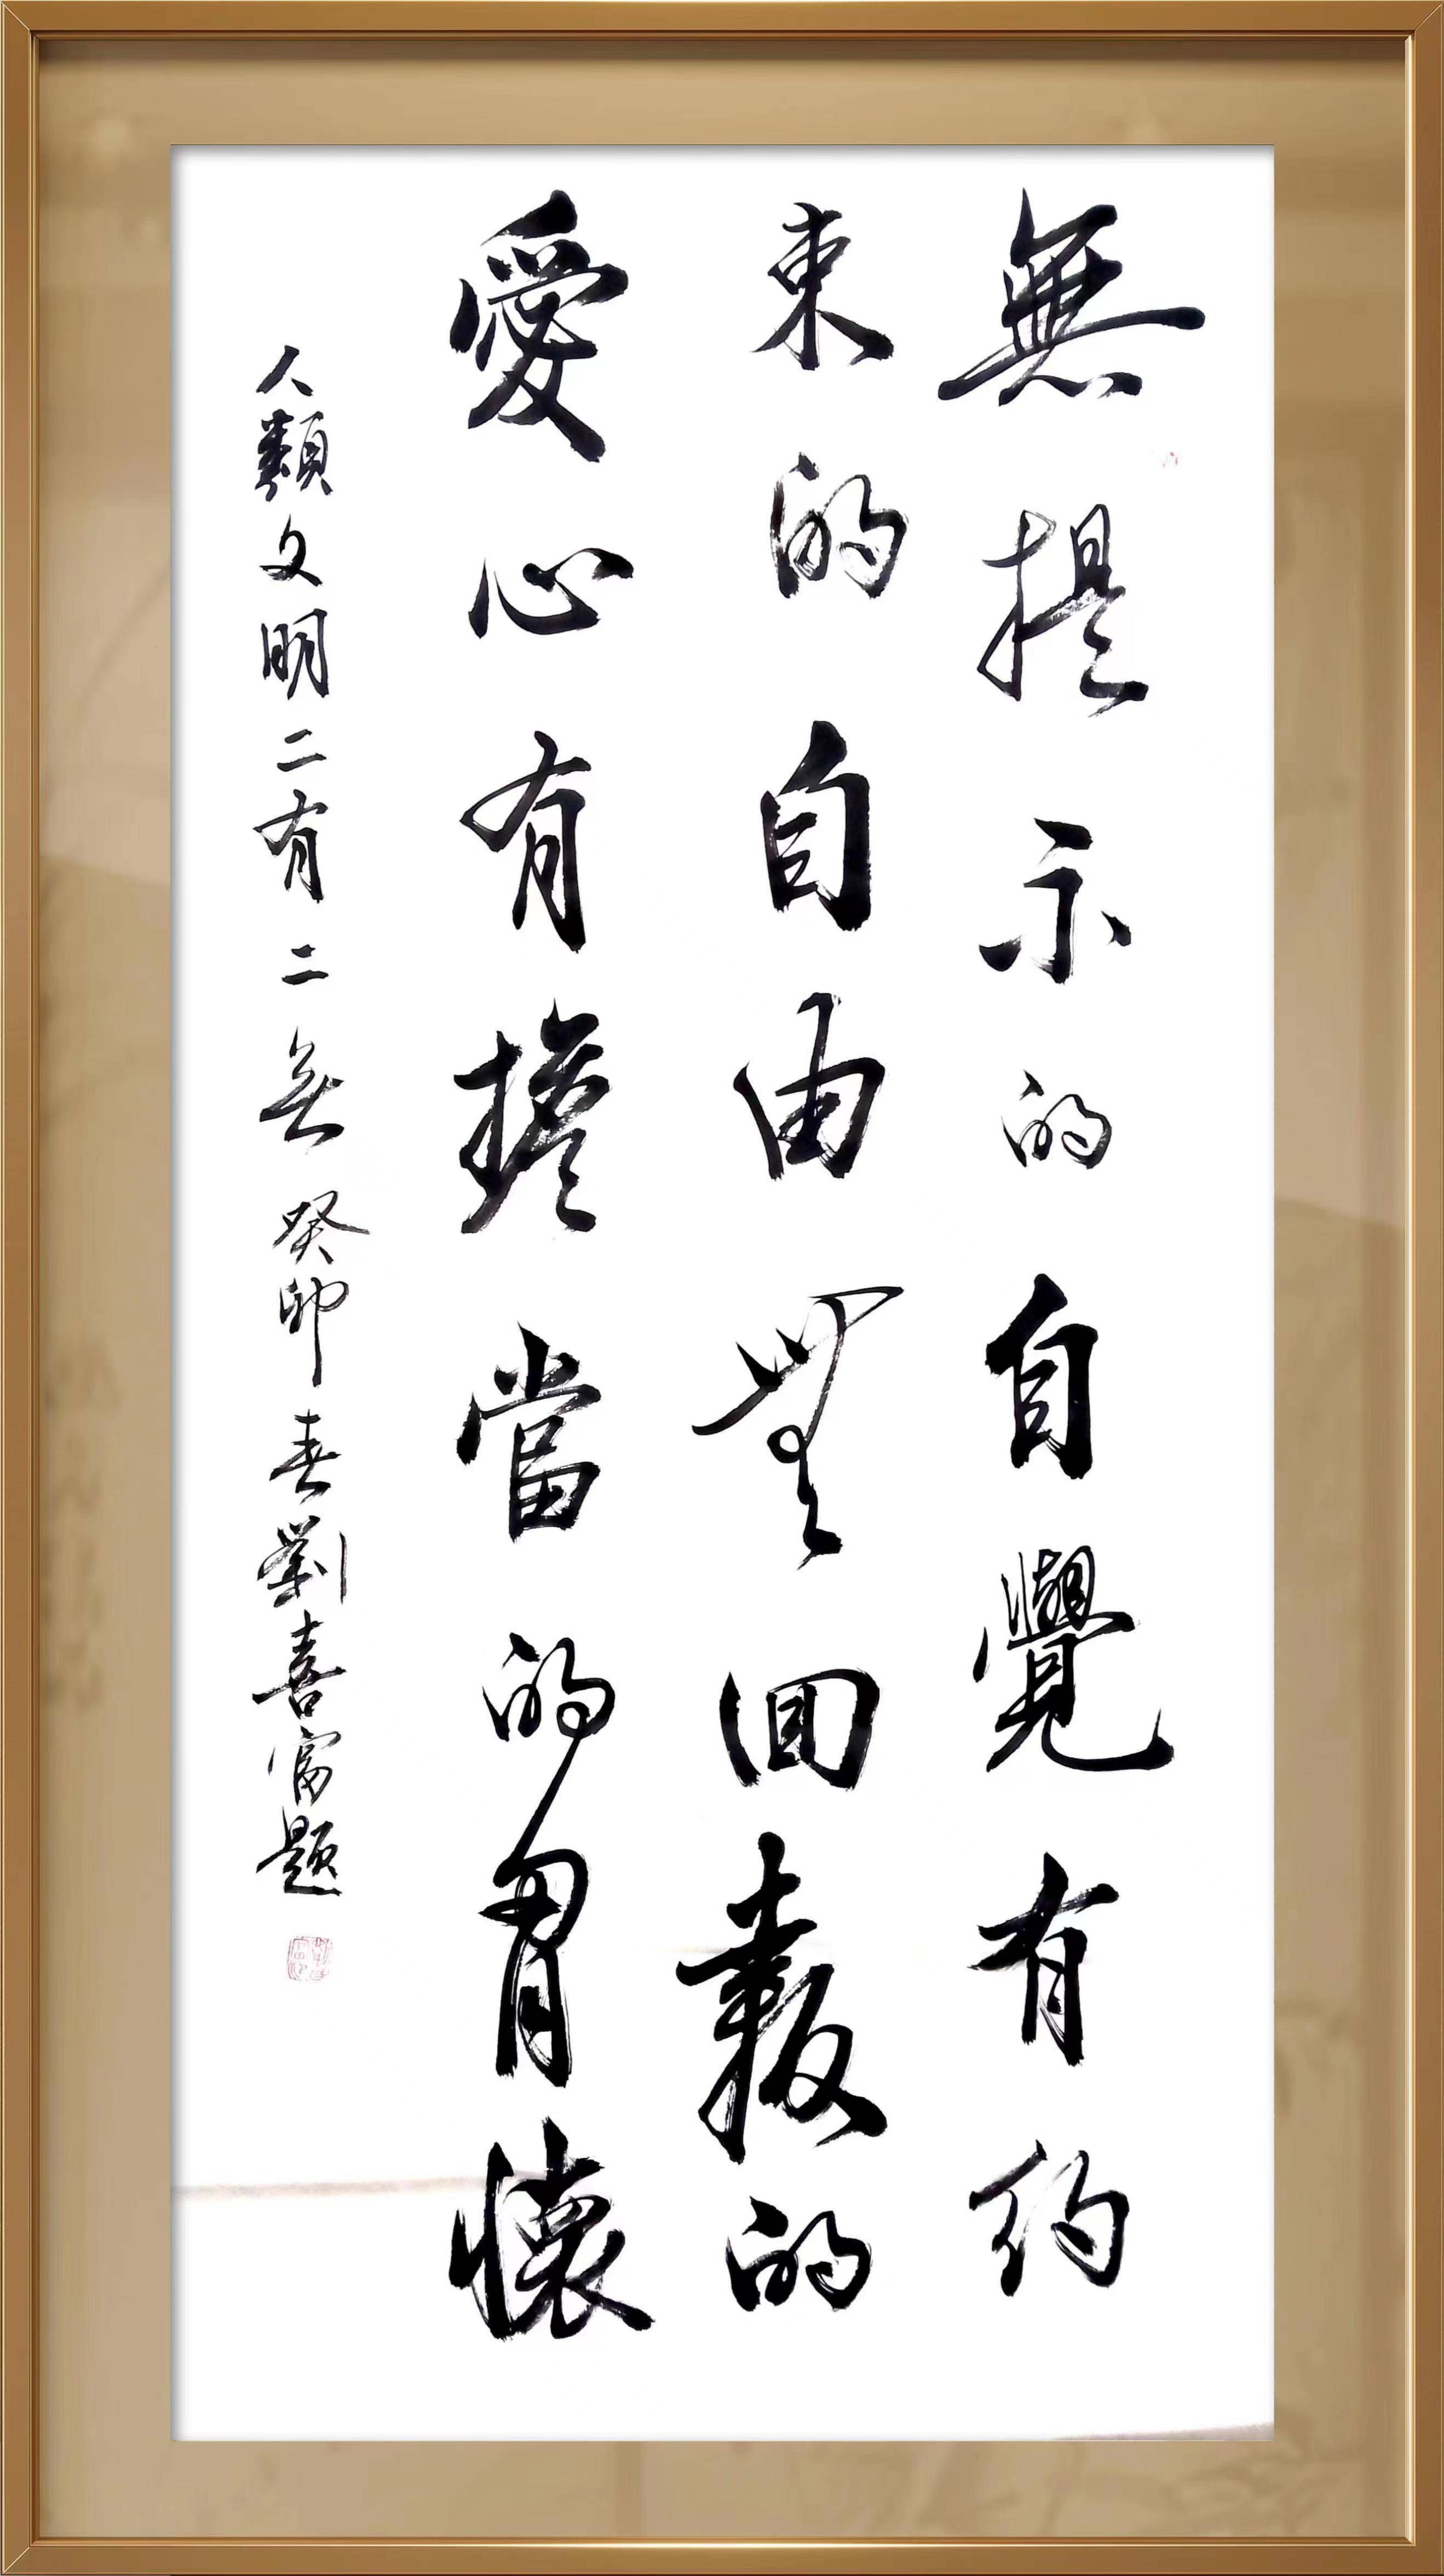 無提示的自覺有約
束的自由無回報的
愛心有擔當的胃懷
人類文明二有二無癸卯春劉喜富題